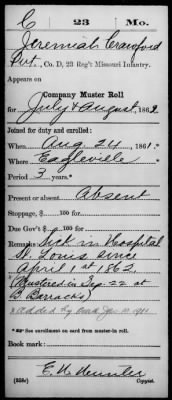 C 23 Mo.
Jeremiah Crawford
Pvt., Co. D, 23 Reg't Missouri Infantry.
Appears on
Company Muster Roll
for July & August, 1862
Joined for duty and enrolled:
When Aug. 24, 1861.
Where Eagleville
Period 3 years.*
Present or absent Absent
Stoppage, $ 100 for
Due Gov't $ 100 for
Remarks: Sick in Hospital
St. Louis since
April 1st 1862.
(Mustered in Sep. 22 at
B. Barracks)
* See enrollment on card from muster-in roll.
Book mark:
Copyist.